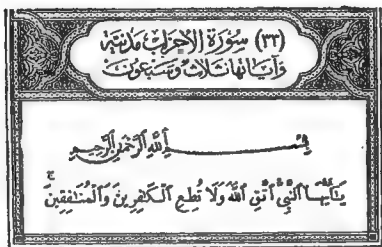 (٣٣) سُورَةُ الأَحْزَابِ مَدَنِيَّة
وَآيَاتُهَا ثَلَاثٌ وَسَبْعُونَ
بِسْمِ اللَّهِ الرَّحْمَٰنِ الرَّحِيمِ
يَٰٓأَيُّهَا ٱلنَّبِىُّ ٱتَّقِ ٱللَّهَ وَلَا تُطِعِ ٱلْكَٰفِرِينَ وَٱلْمُنَٰفِقِينَ ۚ